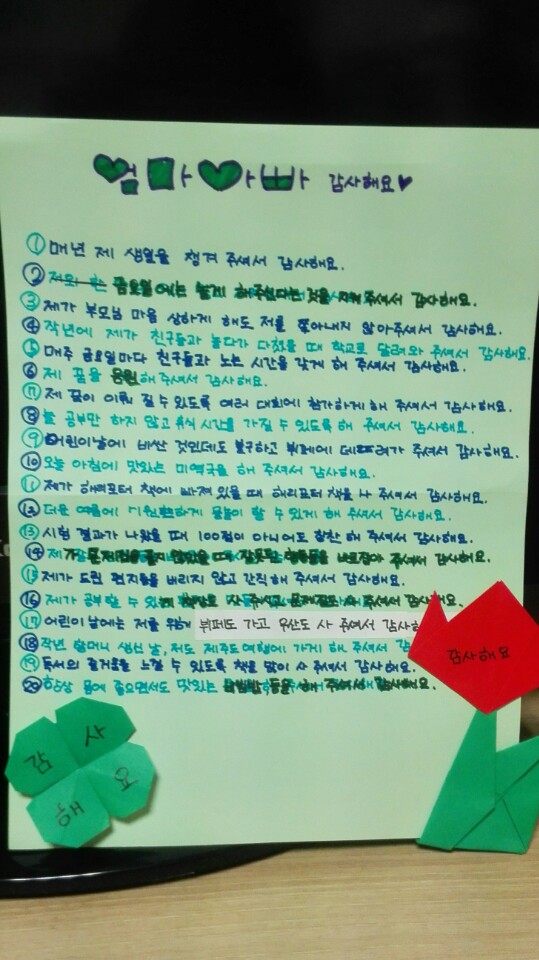 엄마아빠 감사해요♥
① 매년 제 생일을 챙겨 주셔서 감사해요.
② 금요일에는 놀게 해주신다는 것을 지켜 주셔서 감사해요.
③ 제가 부모님 마음 상하게 해도 저를 쫓아내지 않아주셔서 감사해요.
④ 작년에 제가 친구들과 놀다가 다쳤을 때 학교로 달려와 주셔서 감사해요.
⑤ 매주 금요일마다 친구들과 노는 시간을 갖게 해 주셔서 감사해요.
⑥ 제 꿈을 응원해 주셔서 감사해요.
⑦ 제 꿈이 이뤄 질 수 있도록 여러 대회에 참가하게 해 주셔서 감사해요.
⑧ 늘 공부만 하지 않고 휴식 시간을 가질 수 있도록 해 주셔서 감사해요.
⑨ 어린이날에 비싼 것인데도 불구하고 뷔페에 데려가 주셔서 감사해요.
⑩ 오늘 아침에 맛있는 미역국을 해 주셔서 감사해요.
⑪ 제가 해리포터 책에 빠져 있을 때 해리포터 책을 사 주셔서 감사해요.
⑫ 더운 여름에 시원하게 물놀이 할 수 있게 해 주셔서 감사해요.
⑬ 시험 결과가 나왔을 때 100점이 아니어도 칭찬 해 주셔서 감사해요.
⑭ 제가 문제집을 풀지 않았을 때 잘못한 행동들을 바로잡아 주셔서 감사해요.
⑮ 제가 드린 편지들을 버리지 않고 간직해 주셔서 감사해요.
⑯ 제가 공부 할 수 있게 책상도 사 주시고 문제집도 사 주셔서 감사해요.
⑰ 어린이 날에는 저를 위해 뷔페도 가고, 우산도 사 주셔서 감사해
⑱ 작년 할머니 생신 날, 저도 제주도 여행에 가게 해 주셔서 감
⑲ 독서의 즐거움을 느낄 수 있도록 책을 많이 사 주셔서 감사해요.
⑳ 항상 몸에 좋으면서도 맛있는 등을 해 주셔서 감사해요.
감사해요
감사
해요